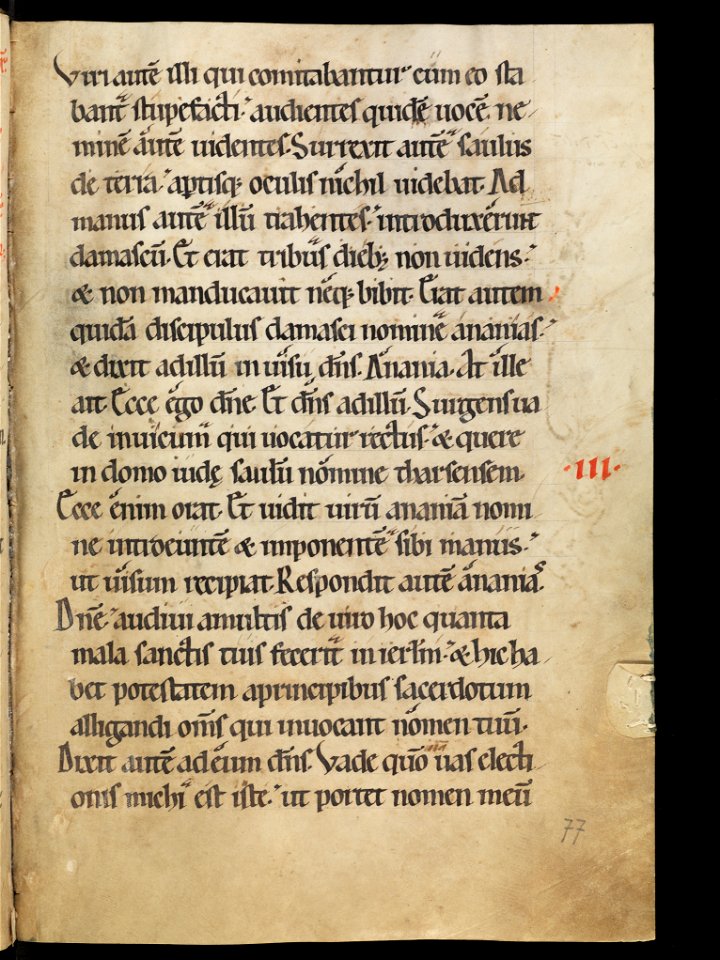 Viri autē illi qui comitabantur cum eo sta
bant̄ stupefacti. audientes quidē uocē. ne
minē autē uidentes. Surrexit autē saulus
de terra. aptisq; oculis nichil uidebat. Ad
manus autē illū trahentes. introduxerunt
damascū. Et erat tribus dieb; non uidens.
& non manducauit neq; bibit. Erat autem
quidā discipulus damasci nomine ananias.
& dixit adillū in uisu dn̄s. Anania. At ille
ait. Ecce ego dn̄e. Et dn̄s adillū. Surgens ua
de inuicum qui uocatur rectus. & quere
in domo iudę saulū nomine tharsensem. ·III·
Ecce enim orat. Et uidit uirū ananiā nomi
ne introeuntē & imponentē sibi manus.
ut uisum recipiat. Respondit autē ananias.
Dn̄e. audiui amultis de uiro hoc quanta
mala sanctis tuis fecerit in ierlm̄. & hic ha
bet potestatem aprincipibus sacerdotum
alligandi om̄s qui inuocant nomen tuū.
Dixit autē ad eum dn̄s. Vade quō uas electi
onis michi est iste. ut portet nomen meū
77